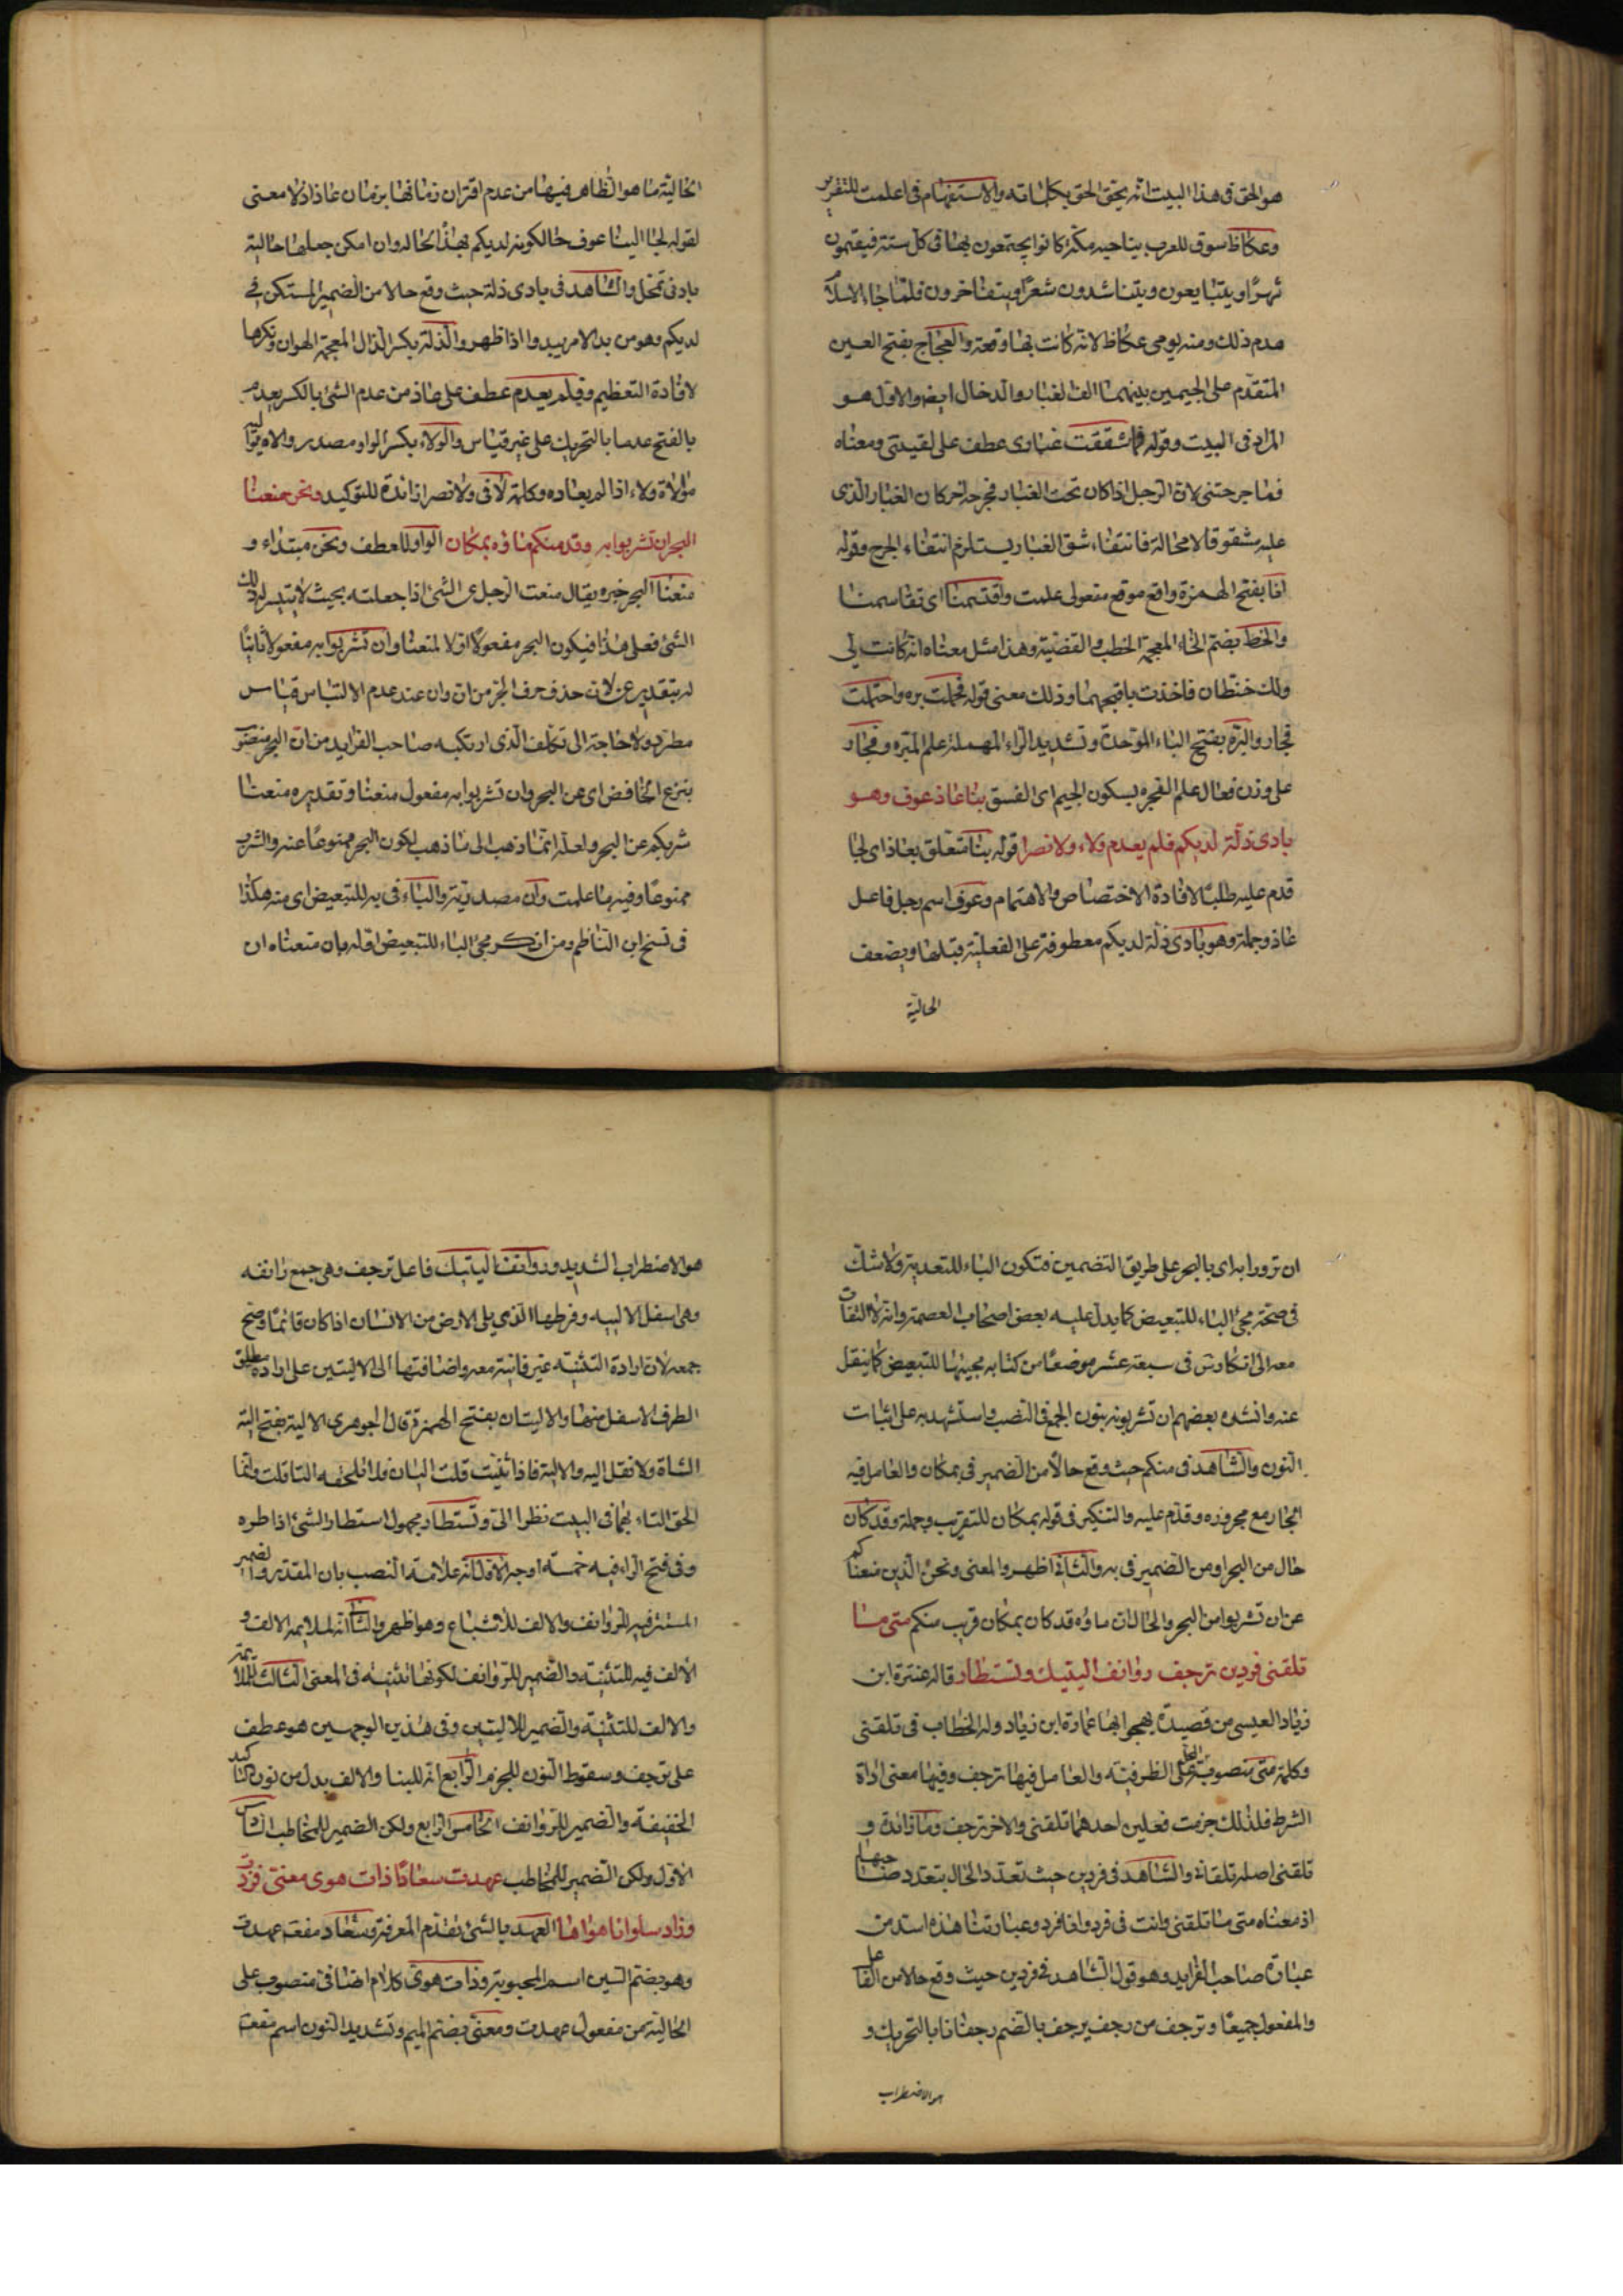 هو الحق فى هذا البيت انه يحق الحق بكلماته والاستفهام فى اعلمت للتقرير
وعكاظ سوق للعرب بناحية مكة كانوا يجتمعون بها فى كل سنة فيقيمون
شهرًا ويتبايعون ويتناشدون شعرًا ويتفاخرون فلما جاء الاسلام
هدم ذلك ومنه يومى عكاظ لانه كانت بها وقعة والعجاج بفتح العين
المتقدم على الجيمين بينهما الف الغبار والدخان ايضا والاول هو
المراد فى البيت وقوله فما شققت غبارى عطف على لقيتنى ومعناه
فما جرحتنى لان الرجل اذا كان تحت الغبار فجرحه آخر كان الغبار الذى
عليه مشقوقا لا محالة فانتفاء شق الغبار يستلزم انتفاء الجرح وقوله
انا بفتح الهمزة واقع موقع مفعولى علمت واقتسمنا اى تقاسمنا
والخط بضم الخاء المعجمة الخطب والقضية وهذا مثل معناه انه كانت لى
ولك خطتان فاخذت باقبحهما وذلك معنى قوله فحملت بره واحتملت
فجار والبرة بفتح الباء الموحدة وتشديد الراء المهملة علم المبرة وفجار
على وزن فعال علم الفجرة بسكون الجيم اى الفسق بنا عاذ عوف وهو
بادى ذلة لديكم فلم يعدم ولاء ولا نصرا قوله بنا متعلق بعاذ اى لجا
قدم عليه طلبًا لافادة الاختصاص والاهتمام وعوف اسم رجل فاعل
عاذ وجملة وهو بادى ذلة لديكم معطوفة على الفعلية قبلها ويضعف
الحالية
الحالية ما هو الظاهر فيها من عدم اقتران زمانها بزمان عاذ اذ لا معنى
لقوله لجا الينا عوف حال كونه لديكم بهذا الحال وان امكن جعلها حالية
بادنى تمحل والشاهد فى بادى ذلة حيث وقع حالا من الضمير المستكن فى
لديكم وهو من بدا الامر يبدوا اذا ظهر والذلة بكسر الذال المعجمة الهوان ونكرها
لافادة التعظيم وفلم يعدم عطف على عاذ من عدم الشئ بالكسر يعدمه
بالفتح عدما بالتحريك على غير قياس والولاء بكسر الواو مصدر والاه يواليه
موالاة وولاء اذا لم يعاده وكلمة لا فى ولا نصرا زائدة للتوكيد ونحن منعنا
البحر ان تشربوا به وقد منكم ماؤه بمكان الواو للعطف ونحن مبتداء و
منعنا البحر خبره يقال منعت الرجل عن الشئ اذا جعلته بحيث لا يتيسر له ذلك
الشئ فعلى هذا فيكون البحر مفعولا اولا لمنعنا وان تشربوا به مفعولا ثانيًا
له بتقدير عن لان حذف حرف الجر من ان وان عند عدم الالتباس قياس
مطرد ولا حاجة الى تكلف الذى ارتكبه صاحب الفرايد من ان البحر منصوب
بنزع الخافض اى عن البحر وان تشربوا به مفعول منعنا وتقديره منعنا
شربكم عن البحر ولعله انما ذهب الى ما ذهب لكون البحر ممنوعًا عنه والشرب
ممنوعًا وفيه ما علمت وان مصدرية والباء فى به للتبعيض اى منه هكذا
فى نسخ ابن الناظم ومن انكر مجئ الباء للتبعيض اوله بان معناه ان
ان ترووا به اى بالبحر على طريق التضمين فتكون الباء للتعدية ولا شك
فى صحة مجئ الباء للتبعيض كما يدل عليه بعض اصحاب العصمة وانه لا التفات
معه الى انكار س فى سبعة عشر موضعًا من كتابه مجيئها للتبعيض كما ينقل
عنه وانشده بعضهم ان تشربونه بنون الجمع فى النصب واستشهد به على اثبات
النون والشاهد فى منكم حيث وقع حالا من الضمير فى بمكان والعامل فيه
الجار مع مجروره وقدم عليه والتنكير فى قوله بمكان للتقريب وجملة وقد كان
حال من البحر او من الضمير فى به والثانى اظهر والمعنى ونحن الذين منعناكم
عن ان تشربوا من البحر والحال ان ماؤه قد كان بمكان قريب منكم متى ما
تلقنى فردين ترجف روانف اليتيك وتستطار قاله عنترة ابن
زياد العبسى من قصيدة يهجو ابها عمارة ابن زياد وله الخطاب فى تلقنى
وكلمة متى منصوبة المحل على الظرفية والعامل فيها ترجف وفيها معنى اداة
الشرط فلذلك جزمت فعلين احدهما تلقنى والاخر ترجف وما زائدة و
تلقنى اصله تلقانى والشاهد فى فردين حيث تعدد الحال بتعدد صاحبها
اذ معناه متى ما تلقنى وانت فى فرد وانا فرد وعبارتنا هذه اسد من
عبارة صاحب الفرايد وهو قول الشاهد فى فردين حيث وقع حالا من الفاعل
والمفعول جميعًا وترجف من رجف يرجف بالضم رجفانا بالتحريك و
هو الاضطراب
هو الاضطراب الشديد وروانف اليتيك فاعل ترجف وهى جمع رانفة
وهى اسفل الالية وفرطها الذى يلى الارض من الانسان اذا كان قائمًا وصح
جمعه لان ارادة التثنية غير فايتة معه واضافتها الى الاليتين على ارادة مطلق
الطرف الاسفل منها والاليتان بفتح الهمزة قال الجوهرى الالية بفتح الية
الشاة ولا تقل اليه والالية فاذا ثنيت قلت اليان فلا تلحقه التا قلت وانما
الحق التاء بهما فى البيت نظرا الى وتستطار مجهول استطار الشئ اذا طره
وفى فتح الراء فيه خمسة اوجه الاول انه علامة النصب بان المقدرة والضمير
المستتر فيه للروانف والالف للاشباع وهو اظهر والثانى انه لملايمة الالف و
الالف فيه للتثنية والضمير للروانف لكونها تثنية فى المعنى الثالث للملايمة
والالف للتثنية والضمير للاليتين وفى هذين الوجهين هو عطف
على ترجف وسقوط النون للجزم الرابع انه للبنا والالف بدل من نون التاكيد
الخفيفة والضمير للروانف الخامس الرابع ولكن الضمير للمخاطب السادس
الاول ولكن الضمير للمخاطب عهدت سعاد ذات هوى معنى فزدت
وزاد سلوانا هواها العهد بالشئ تقدم المعرفة وسعاد مفعه عهدت
وهو بضم السين اسم المحبوبة وذات هوى كلام اضافى منصوب على
الحالية من مفعول عهدت ومعنى بضم الميم وتشديد النون اسم مفعه